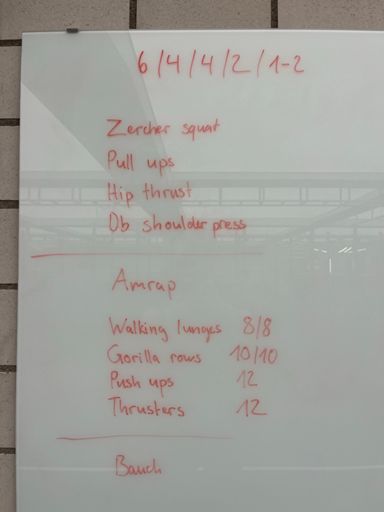 6/4/4/2/1-2
Zercher squat
Pull ups
Hip thrust
Db shoulder press
Amrap
Walking lunges 8/8
Gorilla rows 10/10
Push ups 12
Thrusters 12
Bauch